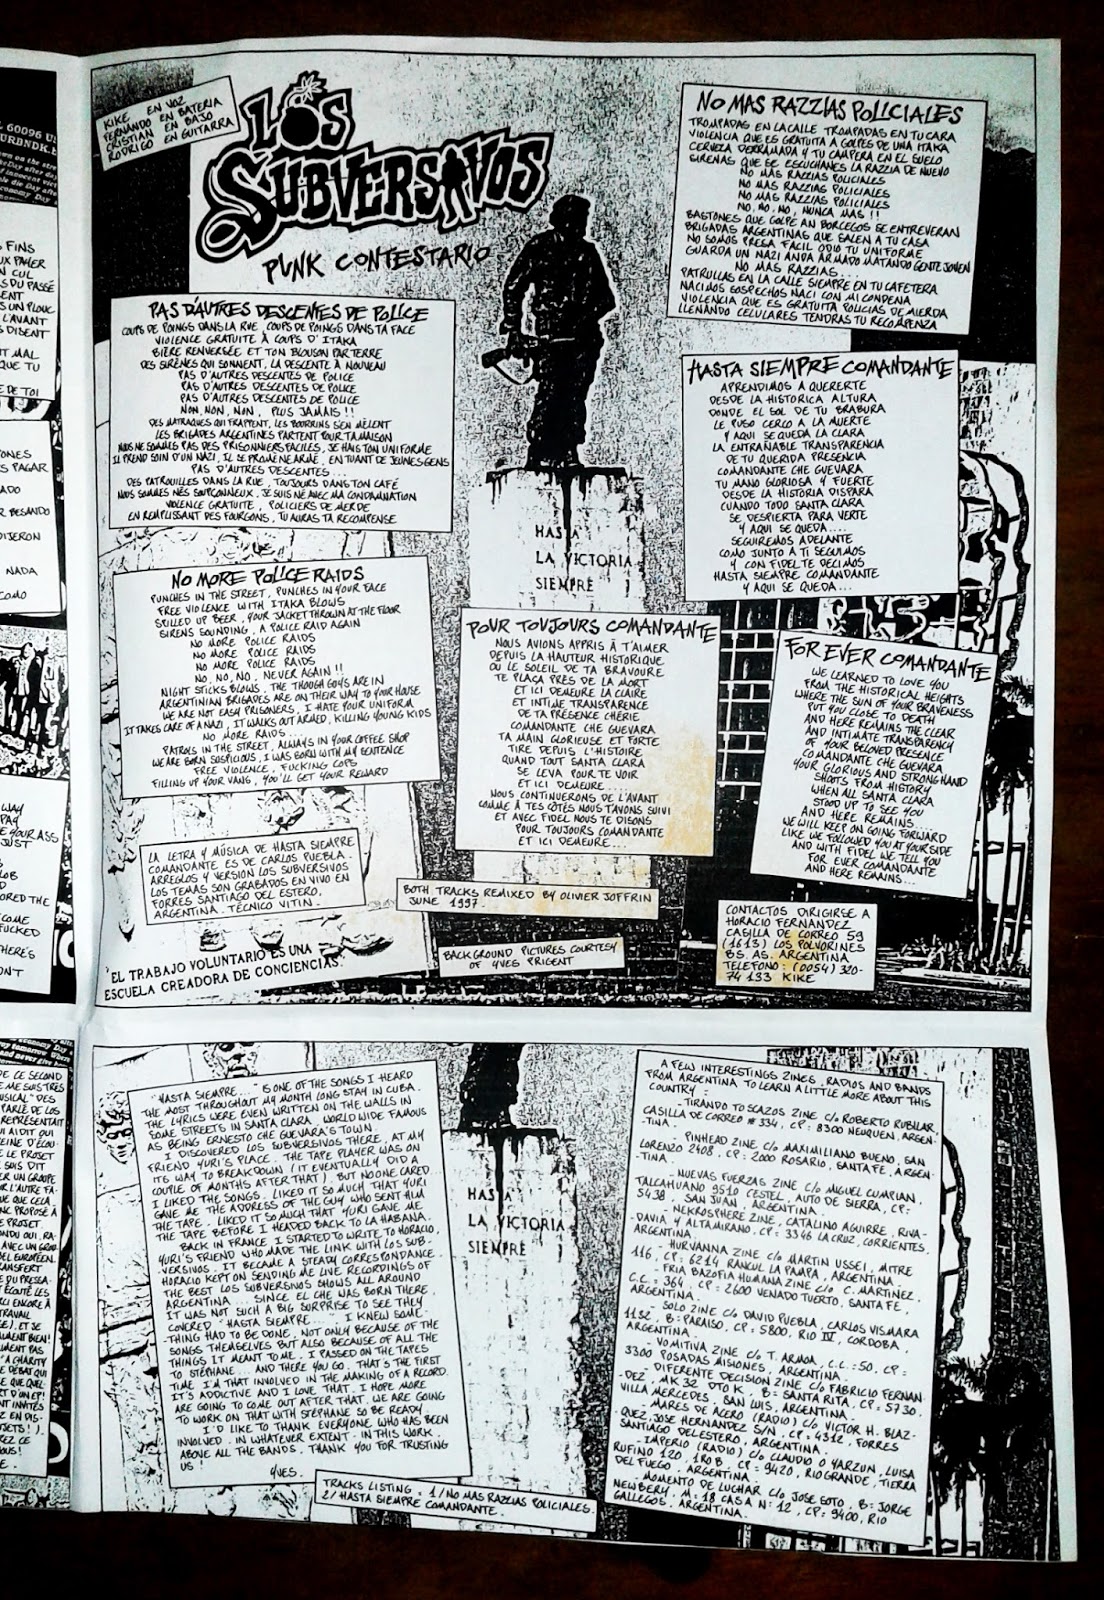 KIKE EN VOZ
FERNANDO EN BATERIA
CRISTIAN EN BAJO
RODRIGO EN GUITARRA
LOS
SUBVERSIVOS
PUNK CONTESTARIO
NO MAS RAZZIAS POLICIALES
TROMPADAS EN LA CALLE TROMPADAS EN TU CARA
VIOLENCIA QUE ES GRATUITA A GOLPES DE UNA ITAKA
CERVEZA DERRAMADA Y TU CAMPERA EN EL SUELO
SIRENAS QUE SE ESCUCHAN ES LA RAZZIA DE NUEVO
NO MAS RAZZIAS POLICIALES
NO MAS RAZZIAS POLICIALES
NO MAS RAZZIAS POLICIALES
NO, NO, NO, NUNCA MAS !!
BASTONES QUE GOLPEAN BORCEGOS SE ENTREVERAN
BRIGADAS ARGENTINAS QUE SALEN A TU CASA
NO SOMOS PRESA FACIL ODIO TU UNIFORME
GUARDA UN NAZI ANDA ARMADO MATANDO GENTE JOVEN
NO MAS RAZZIAS...
PATRULLAS EN LA CALLE SIEMPRE EN TU CAFETERA
NACIMOS SOSPECHOS NACI CON MI CONDENA
VIOLENCIA QUE ES GRATUITA POLICIAS DE MIERDA
LLENANDO CELULARES TENDRAS TU RECOMPENZA
PAS D'AUTRES DESCENTES DE POLICE
COUPS DE POINGS DANS LA RUE, COUPS DE POINGS DANS TA FACE
VIOLENCE GRATUITE À COUPS D'ITAKA
BIÈRE RENVERSÉE ET TON BLOUSON PAR TERRE
DES SIRÈNES QUI SONNENT, LA DESCENTE À NOUVEAU
PAS D'AUTRES DESCENTES DE POLICE
PAS D'AUTRES DESCENTES DE POLICE
PAS D'AUTRES DESCENTES DE POLICE
NON, NON, NON, PLUS JAMAIS !!
DES MATRAQUES QUI FRAPPENT, LES BOURRINS S'EN MÊLENT
LES BRIGADES ARGENTINES PARTENT POUR TA MAISON
NOUS NE SOMMES PAS DES PRISONNIERS FACILES, JE HAIS TON UNIFORME
IL PREND SOIN D'UN NAZI, IL SE PROMÈNE ARMÉ, EN TUANT DE JEUNES GENS
PAS D'AUTRES DESCENTES...
DES PATROUILLES DANS LA RUE, TOUJOURS DANS TON CAFÉ
NOUS SOMMES NÉS SOUPCONNEUX, JE SUIS NÉ AVEC MA CONDAMNATION
VIOLENCE GRATUITE, POLICIERS DE MERDE
EN REMPLISSANT DES FOURGONS, TU AURAS TA RECOMPENSE
HASTA SIEMPRE COMANDANTE
APRENDIMOS A QUERERTE
DESDE LA HISTORICA ALTURA
DONDE EL SOL DE TU BRABURA
LE PUSO CERCO A LA MUERTE
Y AQUI SE QUEDA LA CLARA
LA ENTRAÑABLE TRANSPARENCIA
DE TU QUERIDA PRESENCIA
COMANDANTE CHE GUEVARA
TU MANO GLORIOSA Y FUERTE
DESDE LA HISTORIA DISPARA
CUANDO TODO SANTA CLARA
SE DESPIERTA PARA VERTE
Y AQUI SE QUEDA...
SEGUIREMOS ADELANTE
COMO JUNTO A TI SEGUIMOS
Y CON FIDEL TE DECIMOS
HASTA SIEMPRE COMANDANTE
Y AQUI SE QUEDA...
HASTA
LA VICTORIA
SIEMPRE
NO MORE POLICE RAIDS
PUNCHES IN THE STREET, PUNCHES IN YOUR FACE
FREE VIOLENCE WITH ITAKA BLOWS
SPILLED UP BEER, YOUR JACKET THROWN AT THE FLOOR
SIRENS SOUNDING, A POLICE RAID AGAIN
NO MORE POLICE RAIDS
NO MORE POLICE RAIDS
NO MORE POLICE RAIDS
NO, NO, NO, NEVER AGAIN !!
NIGHT STICKS BLOWS, THE THOUGH GUYS ARE IN
ARGENTINIAN BRIGADES ARE ON THEIR WAY TO YOUR HOUSE
WE ARE NOT EASY PRISONERS, I HATE YOUR UNIFORM
IT TAKES CARE OF A NAZI, IT WALKS OUT ARMED, KILLING YOUNG KIDS
NO MORE RAIDS...
PATROLS IN THE STREET, ALWAYS IN YOUR COFFEE SHOP
WE ARE BORN SUSPICIOUS, I WAS BORN WITH MY SENTENCE
FREE VIOLENCE, FUCKING COPS
FILLING UP YOUR VANS, YOU'LL GET YOUR REWARD
POUR TOUJOURS COMANDANTE
NOUS AVIONS APPRIS À T'AIMER
DEPUIS LA HAUTEUR HISTORIQUE
OÙ LE SOLEIL DE TA BRAVOURE
TE PLAÇA PRÈS DE LA MORT
ET ICI DEMEURE LA CLAIRE
ET INTIME TRANSPARENCE
DE TA PRÉSENCE CHÉRIE
COMMANDANTE CHE GUEVARA
TA MAIN GLORIEUSE ET FORTE
TIRE DEPUIS L'HISTOIRE
QUAND TOUT SANTA CLARA
SE LEVA POUR TE VOIR
ET ICI DEMEURE...
NOUS CONTINUERONS DE L'AVANT
COMME À TES CÔTÉS NOUS T'AVONS SUIVI
ET AVEC FIDEL NOUS TE DISONS
POUR TOUJOURS COMANDANTE
ET ICI DEMEURE...
FOR EVER COMANDANTE
WE LEARNED TO LOVE YOU
FROM THE HISTORICAL HEIGHTS
WHERE THE SUN OF YOUR BRAVENESS
PUT YOU CLOSE TO DEATH
AND HERE REMAINS THE CLEAR
AND INTIMATE TRANSPARENCY
OF YOUR BELOVED PRESENCE
COMANDANTE CHE GUEVARA
YOUR GLORIOUS AND STRONG HAND
SHOOTS FROM HISTORY
WHEN ALL SANTA CLARA
STOOD UP TO SEE YOU
AND HERE REMAINS...
WE WILL KEEP ON GOING FORWARD
LIKE WE FOLLOWED YOU AT YOUR SIDE
AND WITH FIDEL WE TELL YOU
FOR EVER COMANDANTE
AND HERE REMAINS...
LA LETRA Y MÚSICA DE HASTA SIEMPRE
COMANDANTE ES DE CARLOS PUEBLA.
ARREGLOS Y VERSION LOS SUBVERSIVOS
LOS TEMAS SON GRABADOS EN VIVO EN
FORRES SANTIAGO DEL ESTERO.
ARGENTINA. TÉCNICO VITIN.
BOTH TRACKS REMIXED BY OLIVIER JOFFRIN
JUNE 1997.
BACKGROUND PICTURES COURTESY
OF YVES PRIGENT
CONTACTOS DIRIGIRSE A
HORACIO FERNANDEZ
CASILLA DE CORREO 59
(1613) LOS POLVORINES
BS. AS. ARGENTINA
TELEFONO: (0054) 320-
74 133 KIKE
"EL TRABAJO VOLUNTARIO ES UNA
ESCUELA CREADORA DE CONCIENCIAS."
"HASTA SIEMPRE..." IS ONE OF THE SONGS I HEARD
THE MOST THROUGHOUT MY MONTH LONG STAY IN CUBA.
THE LYRICS WERE EVEN WRITTEN ON THE WALLS IN
SOME STREETS IN SANTA CLARA, WORLD WIDE FAMOUS
AS BEING ERNESTO CHE GUEVARA'S TOWN.
I DISCOVERED LOS SUBVERSIVOS THERE, AT MY
FRIEND YURI'S PLACE. THE TAPE PLAYER WAS ON
ITS WAY TO BREAKDOWN (IT EVENTUALLY DID A
COUPLE OF MONTHS AFTER THAT), BUT NO ONE CARED.
I LIKED THE SONGS. LIKED IT SO MUCH THAT YURI
GAVE ME THE ADDRESS OF THE GUY WHO SENT HIM
THE TAPE. LIKED IT SO MUCH THAT YURI GAVE ME
THE TAPE BEFORE I HEADED BACK TO LA HABANA.
BACK IN FRANCE I STARTED TO WRITE TO HORACIO
YURI'S FRIEND WHO MADE THE LINK WITH LOS SUB-
VERSIVOS. IT BECAME A STEADY CORRESPONDANCE.
HORACIO KEPT ON SENDING ME LIVE RECORDINGS OF
THE BEST LOS SUBVERSIVOS SHOWS ALL AROUND
ARGENTINA... SINCE EL CHE WAS BORN THERE,
IT WAS NOT SUCH A BIG SURPRISE TO SEE THEY
COVERED "HASTA SIEMPRE...". I KNEW SOME-
-THING HAD TO BE DONE, NOT ONLY BECAUSE OF THE
SONGS THEMSELVES BUT ALSO BECAUSE OF ALL THE
THINGS IT MEANT TO ME. I PASSED ON THE TAPES
TO STÉPHANE... AND THERE YOU GO. THAT'S THE FIRST
TIME I'M THAT INVOLVED IN THE MAKING OF A RECORD.
IT'S ADDICTIVE AND I LOVE THAT. I HOPE MORE
ARE GOING TO COME OUT AFTER THAT. WE ARE GOING
TO WORK ON THAT WITH STÉPHANE SO BE READY...
I'D LIKE TO THANK EVERYONE WHO HAS BEEN
INVOLVED, IN WHATEVER EXTENT, IN THIS WORK
ABOVE ALL THE BANDS. THANK YOU FOR TRUSTING
US !
YVES.
HASTA
LA VICTORIA
SIEMPRE
TRACKS LISTING : 1/ NO MAS RAZZIAS POLICIALES.
2/ HASTA SIEMPRE COMANDANTE.
A FEW INTERESTINGS ZINES, RADIOS AND BANDS
FROM ARGENTINA TO LEARN A LITTLE MORE ABOUT THIS
COUNTRY :
- TIRANDO TOSCAZOS ZINE C/O ROBERTO RUBILAR,
CASILLA DE CORREO # 334, CP : 8300 NEUQUEN, ARGEN-
-TINA.
- PINHEAD ZINE C/O MAXIMILIANO BUENO, SAN
LORENZO 2408, CP : 2000 ROSARIO, SANTA FE, ARGEN-
TINA.
- NUEVAS FUERZAS ZINE C/O MIGUEL CUMPIAN,
TALCAHUANO 3510 CESTEL, AUTO DE SIERRA, CP :
5438, SAN JUAN, ARGENTINA.
- NEKROSPHERE ZINE, CATALINO AGUIRRE, RIVA-
DAVIA Y ALTAMIRANO, CP : 3346 LA CRUZ, CORRIENTES,
ARGENTINA.
- HURVANNA ZINE C/O MARTIN USSEI, MITRE
116, CP : 6214 RANCUL LA PAMPA, ARGENTINA.
- FRIA BAZOFIA HUMANA ZINE C/O C. MARTINEZ,
C.C. : 364, CP : 2600 VENADO TUERTO, SANTA FE,
ARGENTINA.
- SOLO ZINE C/O DAVID PUEBLA, CARLOS VISMARA
1132, B=PARAISO, CP : 5800, RIO IV, CORDOBA,
ARGENTINA.
- VOMITIVA ZINE C/O T. ARMOA, C.C. : 50, CP :
3300 POSADAS MISIONES, ARGENTINA.
- DIFERENTE DECISION ZINE C/O FABRICIO FERNAN-
DEZ, MK 32 DTO K, B= SANTA RITA, CP : 5730,
VILLA MERCEDES, SAN LUIS, ARGENTINA.
- MARES DE ACERO (RADIO) C/O VICTOR H. BLAZ-
QUEZ, JOSE HERNANDEZ S/N, CP : 4312, FORRES
SANTIAGO DEL ESTERO, ARGENTINA.
- IMPERIO (RADIO) C/O CLAUDIO OYARZUN, LUISA
RUFINO 120, 180 B, CP : 9420, RIO GRANDE, TIERRA
DEL FUEGO, ARGENTINA.
- MOMENTO DE LUCHAR C/O JOSE SOTO, B= JORGE
NEWBERY, M=18 CASA N° 12, CP : 9400, RIO
GALLEGOS, ARGENTINA.